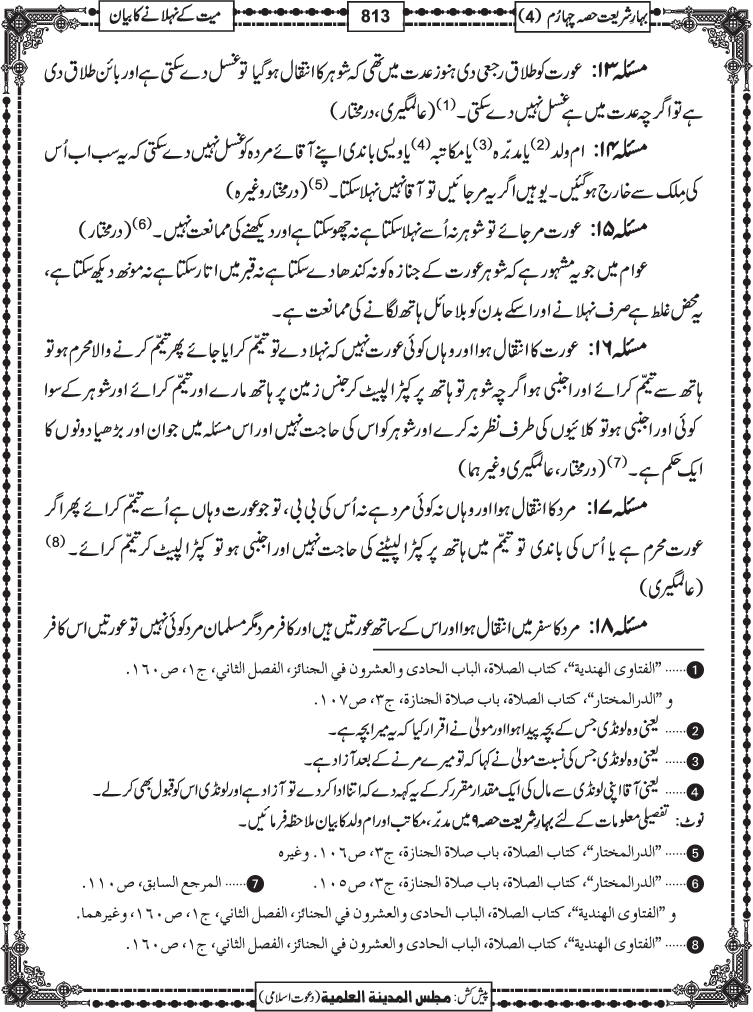 بہارِ شریعت حصہ چہارم (4)
813
میت کے نہلانے کا بیان
مسئلہ ۱۳: عورت کو طلاق رجعی دی ہنوز عدت میں تھی کہ شوہر کا انتقال ہوگیا تو غسل دے سکتی ہے اور بائن طلاق دی
ہے تو اگرچہ عدت میں ہے غسل نہیں دے سکتی۔ (1) (عالمگیری، درمختار)
مسئلہ ۱۴: ام ولد (2) یا مدبّرہ (3) یا مکاتبہ (4) یا ویسی باندی اپنے آقائے مردہ کو غسل نہیں دے سکتی کہ یہ سب اب اُس
کی مِلک سے خارج ہوگئیں۔ یوہیں اگر یہ مر جائیں تو آقا نہیں نہلا سکتا۔ (5) (درمختار وغیرہ)
مسئلہ ۱۵: عورت مر جائے تو شوہر نہ اُسے نہلا سکتا ہے نہ چھو سکتا ہے اور دیکھنے کی ممانعت نہیں۔ (6) (درمختار)
عوام میں جو یہ مشہور ہے کہ شوہر عورت کے جنازہ کو نہ کندھا دے سکتا ہے نہ قبر میں اتار سکتا ہے نہ مونھ دیکھ سکتا ہے،
یہ محض غلط ہے صرف نہلانے اور اسکے بدن کو بلاحائل ہاتھ لگانے کی ممانعت ہے۔
مسئلہ ۱۶: عورت کا انتقال ہوا اور وہاں کوئی عورت نہیں کہ نہلا دے تو تیمّم کرایا جائے پھر تیمّم کرنے والا محرم ہو تو
ہاتھ سے تیمّم کرائے اور اجنبی ہو اگرچہ شوہر تو ہاتھ پر کپڑا لپیٹ کر جنس زمین پر ہاتھ مارے اور تیمّم کرائے اور شوہر کے سوا
کوئی اور اجنبی ہو تو کلائیوں کی طرف نظر نہ کرے اور شوہر کو اس کی حاجت نہیں اور اس مسئلہ میں جوان اور بڑھیا دونوں کا
ایک حکم ہے۔ (7) (درمختار، عالمگیری وغیرہما)
مسئلہ ۱۷: مرد کا انتقال ہوا اور وہاں نہ کوئی مرد ہے نہ اُس کی بی بی، تو جو عورت وہاں ہے اُسے تیمّم کرائے پھر اگر
عورت محرم ہے یا اُس کی باندی تو تیمّم میں ہاتھ پر کپڑا لپیٹنے کی حاجت نہیں اور اجنبی ہو تو کپڑا لپیٹ کر تیمّم کرائے۔ (8)
(عالمگیری)
مسئلہ ۱۸: مرد کا سفر میں انتقال ہوا اور اس کے ساتھ عورتیں ہیں اور کافر مرد مگر مسلمان مرد کوئی نہیں تو عورتیں اس کافر
1 ...... "الفتاوی الهندية"، كتاب الصلاة، الباب الحادی والعشرون في الجنائز، الفصل الثاني، ج۱، ص۱۶۰.
و "الدرالمختار"، كتاب الصلاة، باب صلاة الجنازة، ج۳، ص۱۰۷.
2 ...... یعنی وہ لونڈی جس کے بچہ پیدا ہوا اور مولیٰ نے اقرار کیا کہ یہ میرا بچہ ہے۔
3 ...... یعنی وہ لونڈی جس کی نسبت مولیٰ نے کہا کہ تو میرے مرنے کے بعد آزاد ہے۔
4 ...... یعنی آقا اپنی لونڈی سے مال کی ایک مقدار مقرر کرکے یہ کہہ دے کہ اتنا ادا کردے تو آزاد ہے اور لونڈی اس کو قبول بھی کرلے۔
نوٹ: تفصیلی معلومات کے لئے بہارِ شریعت حصہ ۹ میں مدبّر، مکاتب اور ام ولد کا بیان ملاحظہ فرمائیں۔
5 ...... "الدرالمختار"، كتاب الصلاة، باب صلاة الجنازة، ج۳، ص۱۰۶. وغیرہ
6 ...... "الدرالمختار"، كتاب الصلاة، باب صلاة الجنازة، ج۳، ص۱۰۵. 7 ...... المرجع السابق، ص۱۱۰.
و "الفتاوی الهندية"، كتاب الصلاة، الباب الحادی والعشرون في الجنائز، الفصل الثاني، ج۱، ص۱۶۰، وغيرهما.
8 ...... "الفتاوی الهندية"، كتاب الصلاة، الباب الحادی والعشرون في الجنائز، الفصل الثاني، ج۱، ص۱۶۰.
پیش کش: مجلس المدينة العلمية (دعوت اسلامی)